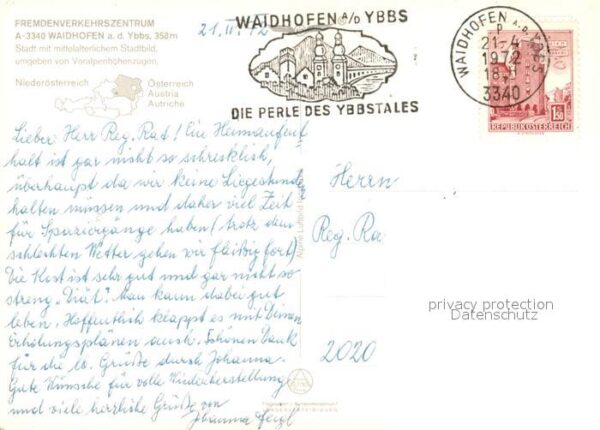 FREMDENVERKEHRSZENTRUM
A-3340 WAIDHOFEN a. d. Ybbs, 358m
Stadt mit mittelalterlichem Stadtbild,
umgeben von Voralpenhöhenzügen.
Niederösterreich
Österreich
Austria
Autriche
WAIDHOFEN a/d YBBS
DIE PERLE DES YBBSTALES
WAIDHOFEN a. d. YBBS
P
21.-4.
1972
18
3340
REPUBLIK ÖSTERREICH
21.IV.72
Lieber Herr Reg. Rat! Ein Heimaufent
halt ist gar nicht so schrecklich,
überhaupt da wir keine Liegestunde
halten müssen und daher viel Zeit
für Spaziergänge haben (trotz dem
schlechten Wetter gehen wir fleißig fort)
Die Kost ist sehr gut und gar nicht so
streng "Diät". Man kann dabei gut
leben. Hoffentlich klappt es mit Deinen
Erholungsplänen auch. Schönen Dank
für die lb. Grüße durch Johanna.
Gute Wünsche für volle Wiederherstellung
und viele herzliche Grüße von
Johanna
Herrn
Reg. Ra
2020
privacy protection
Datenschutz